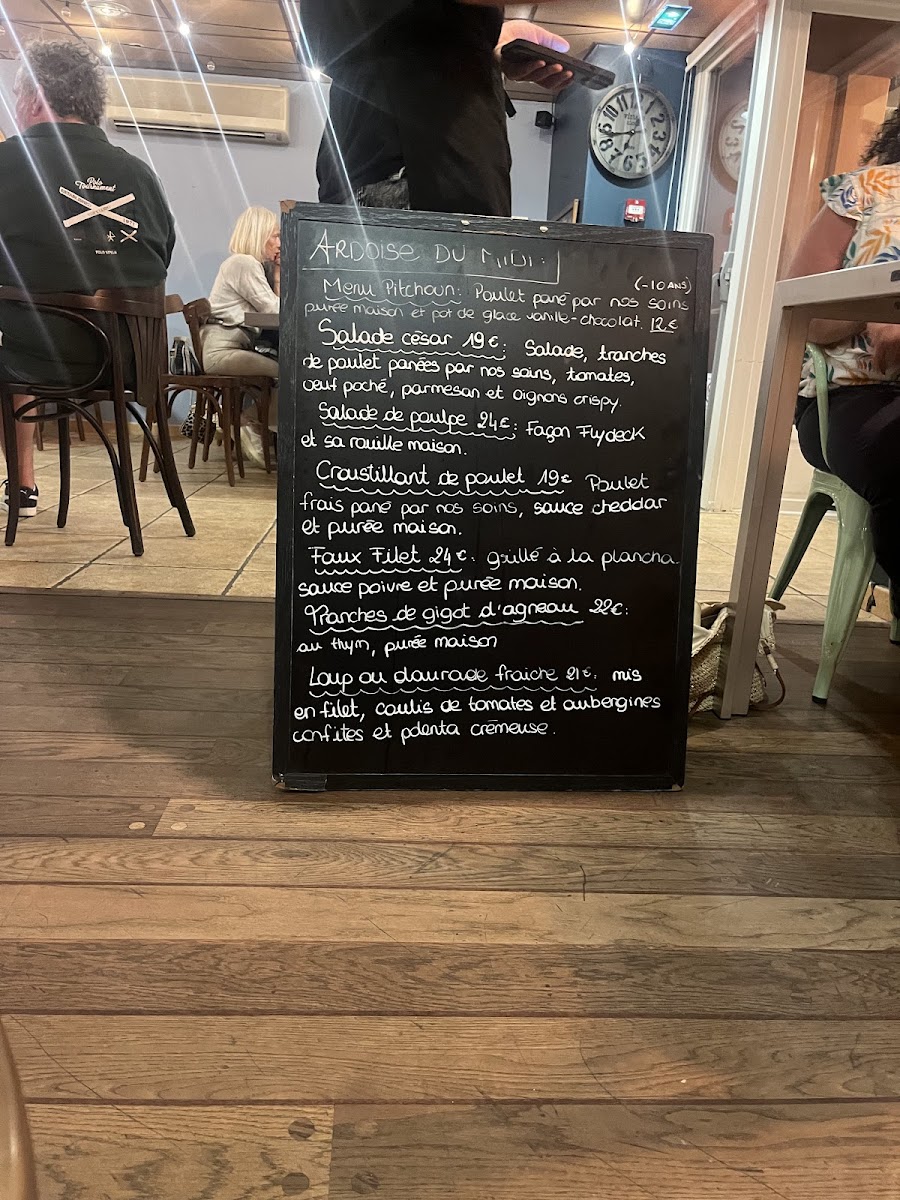 Polo
Tournament
ARDOISE DU MIDI:
(-10 ANS)
Menu Pitchoun: Poulet pané par nos soins
purée maison et pot de glace vanille-chocolat. 12€
Salade césar 19€: Salade, tranches
de poulet panées par nos soins, tomates,
oeuf poché, parmesan et oignons crispy.
Salade de poulpe 24€: Façon Flydeck
et sa rouille maison.
Croustillant de poulet 19€ Poulet
frais pané par nos soins, sauce cheddar
et purée maison.
Faux Filet 24€: grillé à la plancha
sauce poivre et purée maison.
Tranches de gigot d'agneau 22€:
au thym, purée maison
Loup ou daurade fraiche 21€: mis
en filet, coulis de tomates et aubergines
confites et polenta crémeuse.